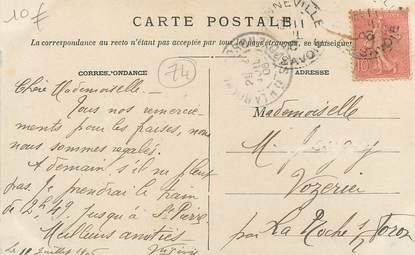 10 €
CARTE POSTALE
La correspondance au recto n'étant pas acceptée par tous les pays étrangers, se renseigner
CORRESPONDANCE
74
ADRESSE
Chère Mademoiselle -
Tous nos remercie-
ments pour les fraises, nous
nous sommes régalés.
A demain s'il ne pleut
pas. Je prendrai le train
de 2h49 jusqu'à St Pierre
Meilleurs amitiés
Le Juillet
Mademoiselle
M.
Vozerier
par La Roche s/ Foron